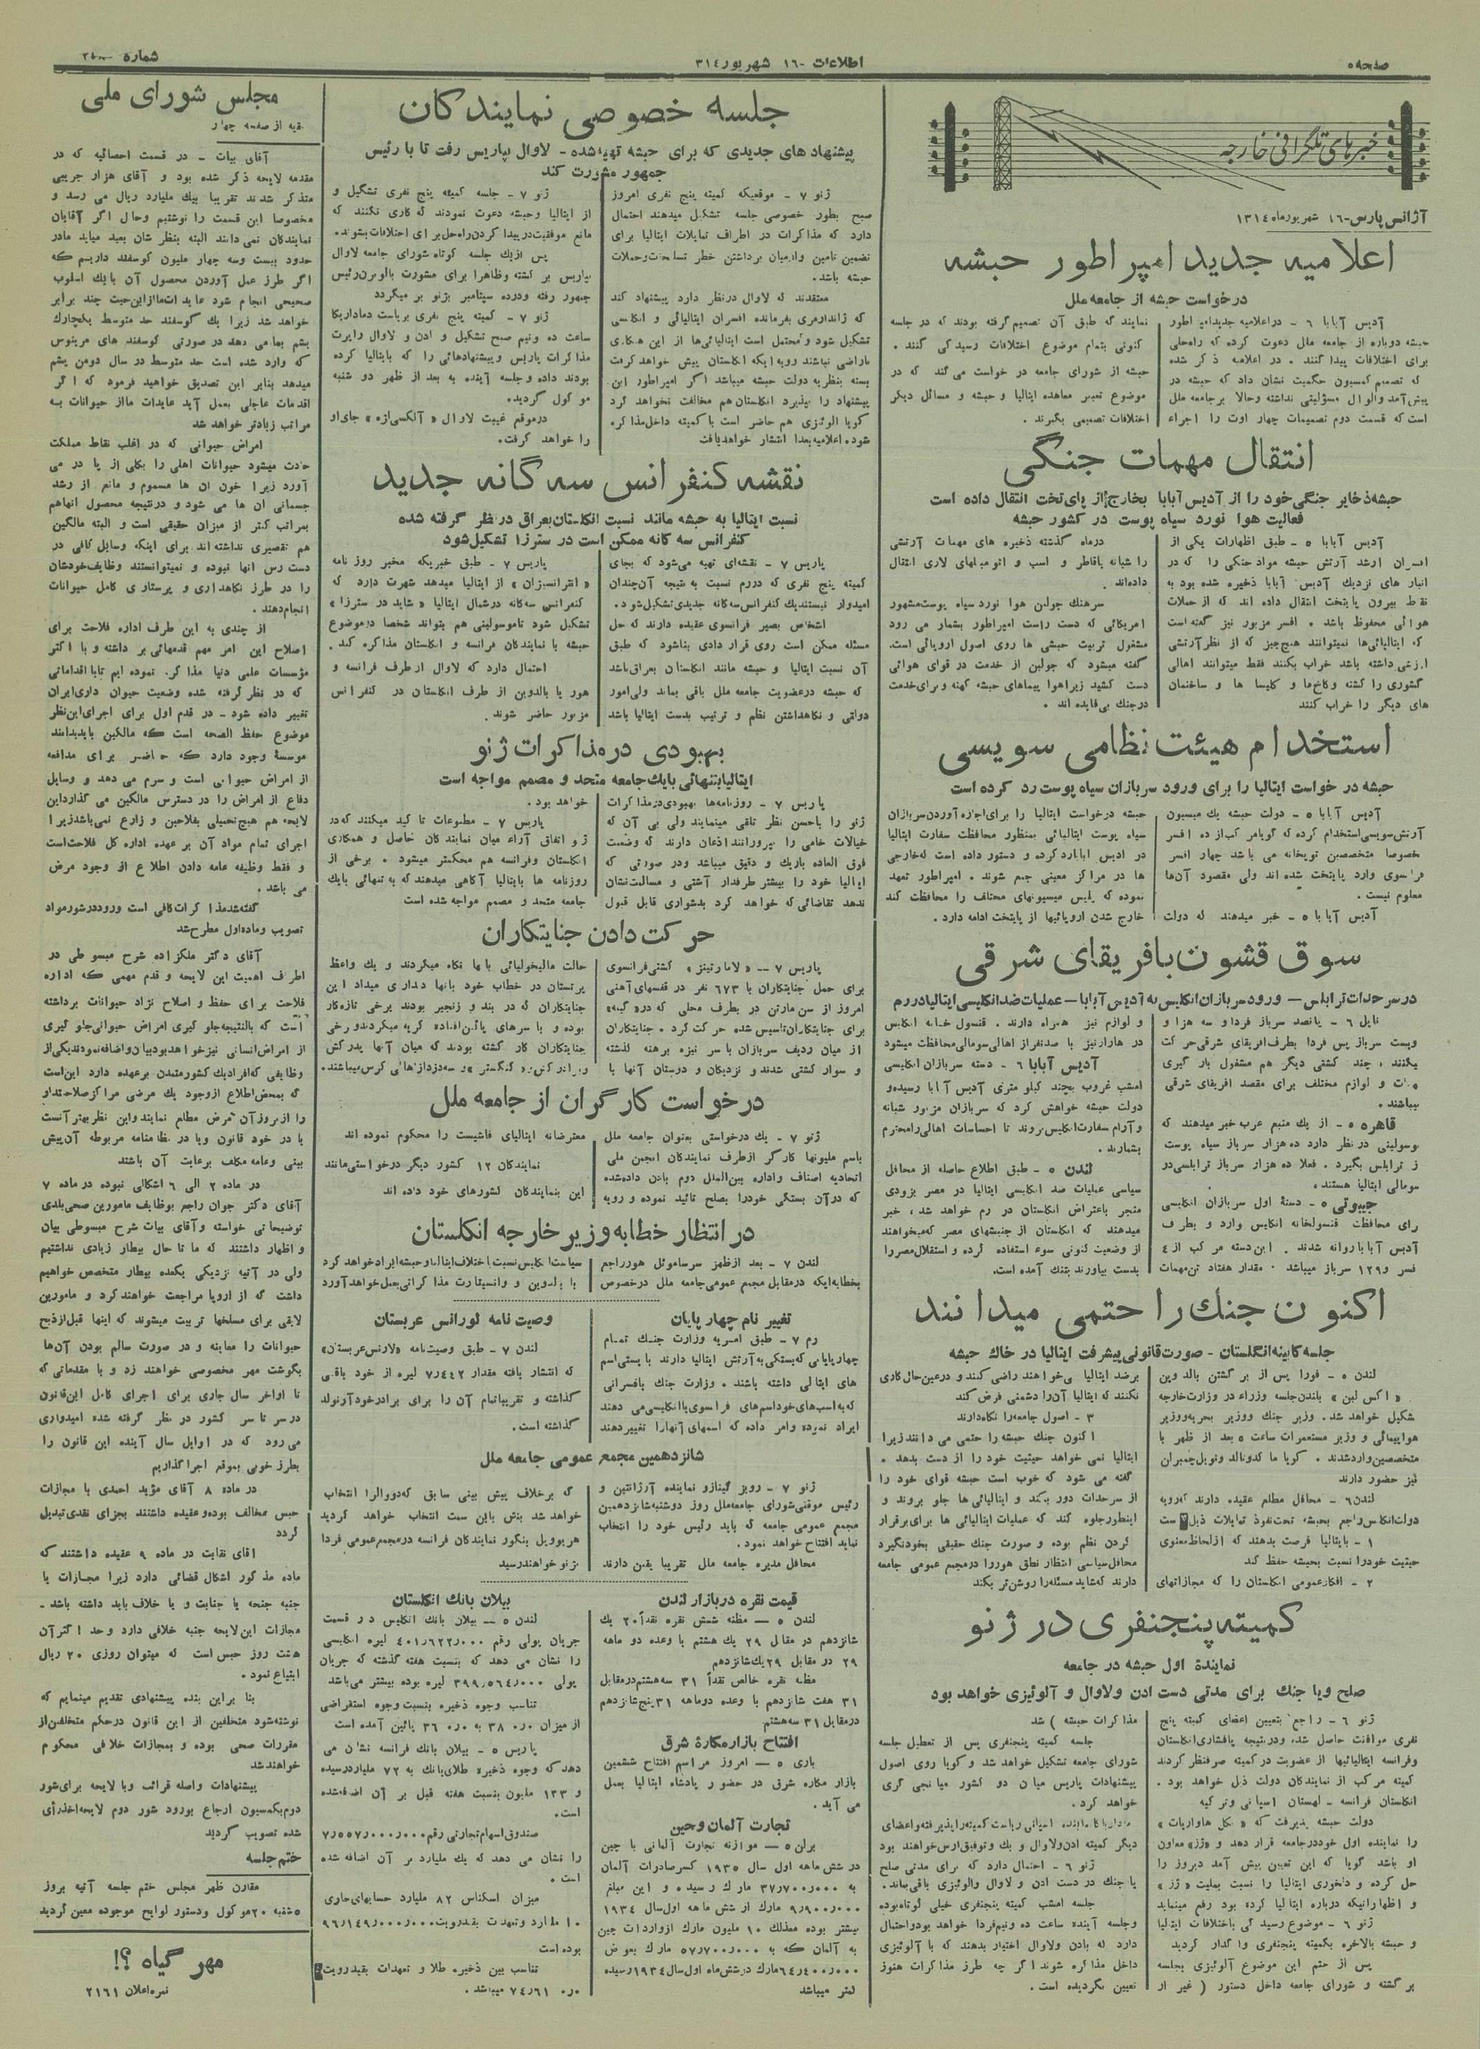 صفحه ۵
اطلاعات - ۱۶ شهریور ۳۱۴
شماره
خبرهای تلگرافی خارجه
آژانس پارس - ۱۶ شهریور ماه ۱۳۱۴
اعلامیه جدید امپراطور حبشه
درخواست حبشه از جامعه ملل
آدیس آبابا ۶ - در اعلامیه جدید امپراطور
حبشه دوباره از جامعه ملل دعوت کرده که راه حلی
برای اختلافات پیدا کنند . در اعلامیه ذکر شده
که تصمیم کمسیون حکمیت نشان داد که حبشه در
پیش آمد والوال مسؤلیتی نداشته وحالا بر جامعه ملل
است که قسمت دوم تصمیمات چهار اوت را اجراء
نمایند که طبق آن تصمیم گرفته بودند که در جلسه
کنونی بتمام موضوع اختلافات رسیدگی کنند .
حبشه از شورای جامعه در خواست می کند که در
موضوع تعبیر معاهده ایتالیا و حبشه و مسائل دیگر
اختلافات تصمیمی بگیرند .
انتقال مهمات جنگی
حبشه ذخایر جنگی خود را از آدیس آبابا بخارج از پای تخت انتقال داده است
فعالیت هوا نورد سیاه پوست در کشور حبشه
آدیس آبابا ۵ - طبق اظهارات یکی از
افسران ارشد آرتش حبشه مواد جنگی را که در
انبار های نزدیک آدیس آبابا ذخیره شده بود به
نقاط بیرون پایتخت انتقال داده اند که از حملات
هوائی محفوظ باشد . افسر مزبور نیز گفته است
که ایتالیائیها نمیتوانند هیچ چیز که از نظر آرتشی
ارزشی داشته باشد خراب بکنند فقط میتوانند اهالی
کشوری را کشته و کاخ‌ها و کلیسا ها و ساختمان
های دیگر را خراب کنند
درماه گذشته ذخیره های مهمات آرتشی
را شبانه باقاطر و اسب و اتومبیلهای لاری انتقال
داده‌اند.
سرهنک جولین هوا نورد سیاه پوست مشهور
امریکائی که دست راست امپراطور بشمار می رود
مشغول تربیت حبشی ها روی اصول اروپائی است.
گفته میشود که جولین از خدمت در قوای هوائی
دست کشید زیرا هوا پیماهای حبشه کهنه و برای خدمت
درجنک بی فایده اند .
استخدام هیئت نظامی سویسی
حبشه در خواست ایتالیا را برای ورود سربازان سیاه پوست رد کرده است
آدیس آبابا ۵ - دولت حبشه یک میسیون
آرتش سویسی استخدام کرده که گویا مرکب از ده افسر
خصوصا متخصصین توپخانه می باشد چهار افسر
معلوم نیست .
آدیس آبابا ۵ - خبر میدهند که دولت
حبشه درخواست ایتالیا را برای اجازه آوردن سربازان
سیاه پوست ایتالیائی بمنظور محافظت سفارت ایتالیا
در ادیس ابابا رد کرده و دستور داده است که خارجی
ها در مراکز معینی جمع شوند . امپراطور تعهد
نموده که پلیس میسیونهای مختلف را محافظت کند
خارج شدن اروپائیها از پایتخت ادامه دارد .
سوق قشون بافریقای شرقی
در سرحدات ترابلس - ورود سربازان انگلیس به آدیس آبابا - عملیات ضد انگلیسی ایتالیا در رم
ویست سرباز پس فردا بطرف افریقای شرقی حرکت
میکنند ، چند کشتی دیگر هم مشغول بار گیری
و لوازم مختلف برای مقصد افریقای شرقی
میباشند .
قاهره ۵ - از یک منبع عرب خبر میدهند که
موسولینی در نظر دارد ده هزار سرباز سیاه پوست
از ترابلس بگیرد . فعلا ده هزار سرباز ترابلسی در
سومالی ایتالیا هستند .
جیبوتی ۵ - دستهٔ اول سربازان انگلیسی
برای محافظت قنسولخانه انگلیس وارد و بطرف
آدیس آبابا روانه شدند . این دسته مرکب از ۴
افسر و ۱۲۹ سرباز میباشد . مقدار هفتاد تن مهمات
و لوازم نیز همراه دارند . قنسول خانه انگلیس
در هارار نیز با صد نفر از اهالی سومالی محافظت میشود
آدیس آبابا ۶ - دسته سربازان انگلیسی
امشب غروب بچند کیلو متری آدیس آبابا رسیده و
دولت حبشه خواهش کرد که سربازان مزبور شبانه
و آرام سفارت انگلیس بروند تا احساسات اهالی را محترم
بشمارند .
لندن ۵ - طبق اطلاع حاصله از محافل
سیاسی عملیات ضد انگلیسی ایتالیا در مصر بزودی
منجر باعتراض انگلستان در رم خواهد شد ، خبر
میدهند که انگلستان از جنبشهای مصر که میخواهند
از وضعیت کنونی سوء استفاده کرده و استقلال مصر را
بدست بیاورند بتنک آمده است.
اکنون جنک را حتمی میدانند
جلسه کابینه انگلستان - صورت قانونی پیشرفت ایتالیا در خاک حبشه
لندن ۵ - فورا پس از بر گشتن بالدوین
« اکس لبن » بلندن جلسه وزراء در وزارت خارجه
تشکیل خواهد شد. وزیر جنک ووزیر بحریه ووزیر
هواپیمائی و وزیر مستعمرات ساعت ۵ بعد از ظهر با
متخصصین وارد شدند . گویا ما کدونالد و نویل چمبرلن
نیز حضور دارند
لندن ۶ - محافل مطلع عقیده دارند که رویه
دولت انگلیس راجع بحبشه تحت نفوذ تمایلات ذیل است
۱ - بایتالیا فرصت بدهند که از لحاظ معنوی
حیثیت خود را نسبت بحبشه حفظ کند
۲ - افکار عمومی انگلستان را که مجازاتهای
برضد ایتالیا می‌خواهند راضی کنند و در عین حال کاری
نکنند که ایتالیا آن را دشمنی فرض کند
۳ - اصول جامعه را نگاه دارند
اکنون جنک حبشه را حتمی می دانند زیرا
ایتالیا نمی خواهد حیثیت خود را از دست بدهد .
گفته می شود که خوب است حبشه قوای خود را
از سرحدات دور بکند و ایتالیائی ها جلو بروند و
اینطور جلوه کند که عملیات ایتالیائی ها برای برقرار
کردن نظم بوده و صورت جنک حقیقی بخود نگیرد
محافل سیاسی انتظار نطق هور را در مجمع عمومی جامعه
دارند که شاید مسئله را روشن تر بکند
کمیته پنجنفری در ژنو
نمایندهٔ اول حبشه در جامعه
صلح ویا جنک برای مدتی دست ادن ولاوال و آلوئیزی خواهد بود
ژنو ۶ - راجع بتعیین اعضای کمیته پنج
نفری موافقت حاصل شده ودرنتیجه پافشاری انگلستان
وفرانسه ایتالیائیها از عضویت در کمیته صرفنظر کردند
کمیته مرکب از نمایندگان دولت ذیل خواهد بود .
انگلستان فرانسه - لهستان اسپانی و ترکیه
دولت حبشه پذیرفت که « تکل هاواریات »
را نماینده اول خود در جامعه قرار دهد و «ژز» معاون
او باشد گویا که این تعیین پیش آمد دیروز را
حل کرده و دلخوری ایتالیا را نسبت بملیت « ژز »
و اظهاراتیکه درباره ایتالیا کرده بود رفع مینماید
ژنو ۶ - موضوع رسیدگی باختلافات ایتالیا
و حبشه بالاخره بکمیته پنجنفری واگذار گردید
پس از ختم این موضوع آلوئیزی بجلسه
برگشته و شورای جامعه داخل دستور ( غیر از
مذاکرات حبشه ) شد
جلسه کمیته پنجنفری پس از تعطیل جلسه
شورای جامعه تشکیل خواهد شد و گویا روی اصول
پیشنهادات پاریس میان دو کشور میانجی گری
خواهد کرد .
دیگر کمیته ادن ولاوال و بک و توفیق ارس خواهند بود
ژنو ۶ - احتمال دارد که برای مدتی صلح
یا جنک در دست ادن و لاوال والوئیزی باقی بماند.
جلسه امشب کمیته پنجنفری خیلی کوتاه بوده
وجلسه آینده ساعت ده و نیم فردا خواهد بود و احتمال
دارد که بادن ولاوال اختیار بدهند که با آلوئیزی
داخل مذاکره شوند اگر چه طرز مذاکرات هنوز
تعیین نگردیده است .
جلسه خصوصی نمایندگان
پیشنهاد های جدیدی که برای حبشه تهیه شده - لاوال بپاریس رفت تا با رئیس
جمهور مشورت کند
ژنو ۷ - موقعیکه کمیته پنج نفری امروز
صبح بطور خصوصی جلسه تشکیل میدهند احتمال
دارد که مذاکرات در اطراف تمایلات ایتالیا برای
تضمین تامین و از میان برداشتن خطر تسلیحات و حملات
حبشه باشد.
معتقدند که لاوال در نظر دارد پیشنهاد کند
که ژاندارمری بفرمانده افسران ایتالیائی و انگلسی
تشکیل شود و محتمل است ایتالیائی‌ها از این همکاری
ناراضی نباشند رویه ایکه انگلستان پیش خواهد گرفت
بسته بنظریه دولت حبشه میباشد اگر امپراطور این
پیشنهاد را بپذیرد انگلستان هم مخالفت نخواهد کرد
گویا الوئیزی هم حاضر است با کمیته داخل مذاکره
شود، اعلامیه بعدا انتشار خواهد یافت
ژنو ۷ - جلسه کمیته پنج نفری تشکیل و
از ایتالیا وحبشه دعوت نمودند که کاری نکنند که
مانع موفقیت در پیدا کردن راه حل برای اختلافات بشوند.
پس از یک جلسه کوتاه شورای جامعه لاوال
بپاریس بر گشته وظاهرا برای مشورت بالوبرن رئیس
جمهور رفته ودرده سپتامبر بژنو بر میگردد
ژنو ۷ - کمیته پنج نفری بریاست دماداریاگا
ساعت ده ونیم صبح تشکیل و ادن و لاوال راپرت
مذاکرات پاریس و پیشنهادهائی را که بایتالیا کرده
بودند داده و جلسه آینده به بعد از ظهر دو شنبه
موکول گردید.
درموقع غیبت لاوال « آلکسی لژه » جای او
را خواهد گرفت.
نقشه کنفرانس سه گانه جدید
نسبت ایتالیا به حبشه مانند نسبت انگلستان بعراق در نظر گرفته شده
کنفرانس سه گانه ممکن است در سترزا تشکیل شود
پاریس ۷ - نقشه‌ای تهیه می‌شود که بجای
کمیته پنج نفری که در رم نسبت به نتیجه آن چندان
امیدوار نیستند یک کنفرانس سه گانه جدیدی تشکیل شود.
اشخاص بصیر فرانسوی عقیده دارند که حل
مسئله ممکن است روی قرار دادی بنا شود که طبق
آن نسبت ایتالیا و حبشه مانند انگلستان بعراق باشد
که حبشه در عضویت جامعه ملل باقی بماند ولی امور
دولتی و نگاهداشتن نظم و ترتیب بدست ایتالیا باشد
پاریس ۷ - طبق خبریکه مخبر روز نامه
« انترانسیژان » از ایتالیا میدهد شهرت دارد که
کنفرانس سه گانه در شمال ایتالیا « شاید در سترزا »
تشکیل شود تا موسولینی هم بتواند شخصا در موضوع
حبشه با نمایندگان فرانسه و انگلستان مذاکره کند .
احتمال دارد که لاوال از طرف فرانسه و
هور یا بالدوین از طرف انگلستان در کنفرانس
مزبور حاضر شوند .
بهبودی در مذاکرات ژنو
ایتالیا بتنهائی با یک جامعه متحد و مصمم مواجه است
پاریس ۷ - روزنامه‌ها بهبودی در مذاکرات
ژنو را باحسن نظر تلقی مینمایند ولی بی آن که
خیالات خامی را بپرورانند اذعان دارند که وضعیت
فوق العاده باریک و دقیق میباشد ودر صورتی که
ایتالیا خود را بیشتر طرفدار آشتی و مسالمت نشان
ندهد تقاضائی که خواهد کرد بدشواری قابل قبول
خواهد بود .
پاریس ۷ - مطبوعات تاکید میکنند که در
ژنو اتفاق آراء میان نمایندگان حاصل و همکاری
انگلستان وفرانسه هم محکمتر میشود . برخی از
روزنامه ها بایتالیا آگاهی میدهند که به تنهائی بایک
جامعه متحد و مصمم مواجه شده است
حرکت دادن جنایتکاران
پاریس ۷ - « لامارتینر » کشتی فرانسوی
برای حمل جنایتکاران با ۶۷۳ نفر در قفسهای آهنی
امروز از سن مارتن در بطرف محلی که در « گینه »
برای جنایتکاران تاسیس شده حرکت کرد . جنایتکاران
از میان ردیف سربازان با سر نیزه برهنه گذشته
و سوار کشتی شدند و نزدیکان و دوستان آنها با
حالت مالیخولیائی بانها نگاه میکردند و یک واعظ
پرتستان در خطاب خود بانها دلداری میداد این
جنایتکاران که در بند و زنجیر بودند برخی تازه کار
بوده و با سرهای پائین افتاده گریه میکردند و برخی
جنایتکاران کار کشته بودند که میان آنها پدرکش
درخواست کارگران از جامعه ملل
ژنو ۷ - یک درخواستی بعنوان جامعه ملل
باسم ملیونها کارگر از طرف نمایندگان انجمن ملی
اتحادیه اصناف و اداره بین‌الملل دوم بادن داده شده
که در آن بستگی خود را بصلح تائید نموده و رویه
معترضانه ایتالیای فاشیست را محکوم نموده اند
نمایندگان ۱۲ کشور دیگر درخواستی مانند
این بنمایندگان کشورهای خود داده اند
در انتظار خطابه وزیر خارجه انگلستان
لندن ۷ - بعد از ظهر سرساموئل هور راجع
بخطابه ایکه در مقابل مجمع عمومی جامعه ملل در خصوص
سیاست انگلیس نسبت باختلاف ایتالیا و حبشه ایراد خواهد کرد
با بالدوین و وانسیتارت مذاکراتی بعمل خواهد آورد
تغییر نام چهار پایان
رم ۷ - طبق امریه وزارت جنک تمام
چهارپایانی که بستگی به آرتش ایتالیا دارند بایستی اسم
های ایتالی داشته باشند . وزارت جنک بافسرانی
که به اسب‌های خود اسم‌های فرانسوی یا انگلیسی می دهند
ایراد نموده و امر داده که اسمهای آنها را تغییر دهند
وصیت نامه لورانس عربستان
لندن ۷ - طبق وصیت نامه « لارنس عربستان »
که انتشار یافته مقدار ۷٫۴۴۲ لیره از خود باقی
گذاشته و تقریبا تمام آن را برای برادر خود آرنولد
گذاشته است.
شانزدهمین مجمع عمومی جامعه ملل
ژنو ۷ - رویز گینازو نماینده آرژانتین و
رئیس موقتی شورای جامعه ملل روز دوشنبه شانزدهمین
مجمع عمومی جامعه که باید رئیس خود را انتخاب
نماید افتتاح خواهد نمود.
محافل مدیره جامعه ملل تقریبا یقین دارند
که برخلاف پیش بینی سابق که دووالرا انتخاب
خواهد شد بنش باین سمت انتخاب خواهد گردید
هریوویل بنکور نمایندگان فرانسه در مجمع عمومی فردا
بژنو خواهند رسید
قیمت نقره در بازار لندن
لندن ۵ - مظنه شمش نقره نقداً ۲۰ یک
شانزدهم در مقابل ۲۹ یک هشتم با وعده دو ماهه
۲۹ در مقابل ۲۹ یک شانزدهم
مظنه نقره خالص نقداً ۳۱ سه هشتم در مقابل
۳۱ هفت شانزدهم با وعده دوماهه ۳۱ پنج شانزدهم
در مقابل ۳۱ سه هشتم
افتتاح بازار مکارهٔ شرق
باری ۵ - امروز مراسم افتتاح ششمین
بازار مکاره شرق در حضور پادشاه ایتالیا بعمل
می آید .
تجارت آلمان و چین
برلن ۵ - موازنه تجارت آلمانی با چین
در شش ماهه اول سال ۱۹۳۵ کسر صادرات آلمان
به ۳۷٫۷۰۰٫۰۰۰ مارک رسیده و این مبلغ
۹٫۹۰۰٫۰۰۰ مارک از شش ماهه اول سال ۱۹۳۴
بیشتر بوده معذلک ۱۰ ملیون مارک از واردات چین
به آلمان که به ۵۷٫۷۰۰٫۰۰۰ مارک بعوض
۶۴٫۴۰۰٫۰۰۰ مارک در شش ماه اول سال ۱۹۳۴ رسیده
کمتر میباشد
بیلان بانک انگلستان
لندن ۵ - بیلان بانک انگلیس در قسمت
جریان پولی رقم ۴۰۱٫۶۲۲٫۰۰۰ لیره انگلیسی
را نشان می دهد که بنسبت هفته گذشته که جریان
پولی ۳۹۹٫۵۶۴٫۰۰۰ لیره بوده بیشتر می‌باشد
تناسب وجوه ذخیره بنسبت وجوه استقراضی
پاریس ۵ - بیلان بانک فرانسه نشان می
دهد که وجوه ذخیره طلای بانک به ۷۲ ملیارد رسیده
و ۱۳۳ ملیون بنسبت هفته قبل بر آن اضافه شده
است.
صندوق اسهام تجارتی رقم ۷٫۵۵۷٫۰۰۰٫۰۰۰
را نشان می دهد که یک ملیارد بر آن اضافه شده
است .
میزان اسکناس ۸۲ ملیارد حسابهای جاری
۱۰ ملیارد و تعهدات بقید رویت ۹۶٫۱۴۹٫۰۰۰٫۰۰۰
بوده است
تناسب بین ذخیره طلا و تعهدات بقید رویت
۷۴٫۶۱ میباشد .
مجلس شورای ملی
بقیه از صفحه چهار
آقای بیات - در قسمت احصائیه که در
مقدمه لایحه ذکر شده بود و آقای هزار جریبی
متذکر شدند تقریبا بیک ملیارد ریال می رسد و
مخصوصا این قسمت را نوشتیم وحال اگر آقایان
نمایندگان نمی دانند البته بنظر شان بعید میاید مادر
حدود بیست وسه چهار ملیون گوسفند داریم که
اگر طرز عمل آوردن محصول آن بایک اسلوب
صحیحی انجام شود عایدات ما از این حیث چند برابر
خواهد شد زیرا یک گوسفند حد متوسط یکچارک
پشم بما می دهد در صورتی گوسفند های مرینوس
که وارد شده است حد متوسط در سال دومن پشم
میدهد بنابر این تصدیق خواهید فرمود که اگر
اقدمات عاجلی بعمل آید عایدات ما از حیوانات به
مراتب زیادتر خواهد شد
امراض حیوانی که در اغلب نقاط مملکت
حادث میشود حیوانات اهلی را بکلی از پا در می
آورد زیرا خون ان ها مسموم و مانع از رشد
جسمانی ان ها می شود و درنتیجه محصول انهاهم
بمراتب کمتر از میزان حقیقی است و البته مالکین
هم تقصیری نداشته اند برای اینکه وسایل کافی در
دست رس انها نبوده و نمیتوانستند وظایف خودشان
را در طرز نگاهداری و پرستاری کامل حیوانات
انجام دهند .
از چندی به این طرف اداره فلاحت برای
اصلاح این امر مهم قدمهائی بر داشته و با اکثر
مؤسسات علمی دنیا مذاکره نموده ایم تا با اقداماتی
که در نظر گرفته شده وضعیت حیوان داری ایران
تغییر داده شود - در قدم اول برای اجرای این نظر
موضوع حفظ الصحه است که مالکین باید بدانند
موسسهٔ وجود دارد که حاضر برای مدافعه
از امراض حیوانی است و سرم می دهد و وسایل
دفاع از امراض را در دسترس مالکین می گذارد این
لایحه هم هیچ تحمیلی بفلاحین و زارع نمی‌باشد زیرا
اجرای تمام مواد آن بر عهده اداره کل فلاحت است
و فقط وظیفه عامه دادن اطلاع از وجود مرض
می باشد .
گفته شد مذاکرات کافی است ورود در شور مواد
تصویب و ماده اول مطرح شد
آقای دکتر ملکزاده شرح مبسوطی در
اطراف اهمیت این لایحه و قدم مهمی که اداره
فلاحت برای حفظ و اصلاح نژاد حیوانات برداشته
است که بالنتیجه جلوگیری امراض حیوانی جلوگیری
از امراض انسانی نیز خواهد بود بیان و اضافه نمودند یکی از
وظایفی که افراد یک کشور متمدن بر عهده دارد این است
که بمحض اطلاع از وجود یک مرضی مراکز صلاحتدار
را از بروز آن مرض مطلع نمایند و این نظر بهتر آنست
یا در خود قانون ویا در نظامنامه مربوطه آن پیش
بینی وعامه مکلف برعایت آن باشند
در ماده ۲ الی ۶ اشکالی نبوده در ماده ۷
آقای دکتر جوان راجع بوظایف مامورین صحی بلدی
توضیحاتی خواسته و آقای بیات شرح مبسوطی بیان
و اظهار داشتند که ما تا حال بیطار زیادی نداشتیم
ولی در آتیه نزدیکی یکعده بیطار متخصص خواهیم
داشت که از اروپا مراجعت خواهند کرد و مامورین
لایقی برای مسلخها تربیت میشوند که اینها قبل از ذبح
حیوانات را معاینه و در صورت سالم بودن آن‌ها
بگوشت مهر مخصوصی خواهند زد و با مقدماتی که
تا اواخر سال جاری برای اجرای کامل این قانون
در سرتاسر کشور در نظر گرفته شده امیدواری
می رود که در اوایل سال آینده این قانون را
بطرز خوبی بموقع اجرا گذاریم
در ماده ۸ آقای مؤید احمدی با مجازات
حبس مخالف بوده وعقیده داشتند بجزای نقدی تبدیل
گردد
اقای نقابت در ماده ۹ عقیده داشتند که
ماده مذکور اشکال قضائی دارد زیرا مجازات یا
جنبه جنحه یا جنایت و یا خلاف باید داشته باشد .
مجازات این لایحه جنبه خلافی دارد وحد اکثر آن
هشت روز حبس است که میتوان روزی ۲۰ ریال
ابتیاع نمود .
بنا بر این بنده پیشنهادی تقدیم مینمایم که
نوشته شود متخلفین از این قانون در حکم متخلفین از
مقررات صحی بوده و بمجازات خلافی محکوم
خواهند شد
پیشنهادات واصله قرائت وبا لایحه برای شور
دوم بکمسیون ارجاع بورود شور دوم لایحه اخذ رأی
شده تصویب گردید
ختم جلسه
مقارن ظهر مجلس ختم جلسه آتیه بروز
۵شنبه ۲۰ موکول ودستور لوایح موجوده معین گردید
مهر گیاه ؟!
نمره اعلان ۲۱۶۱